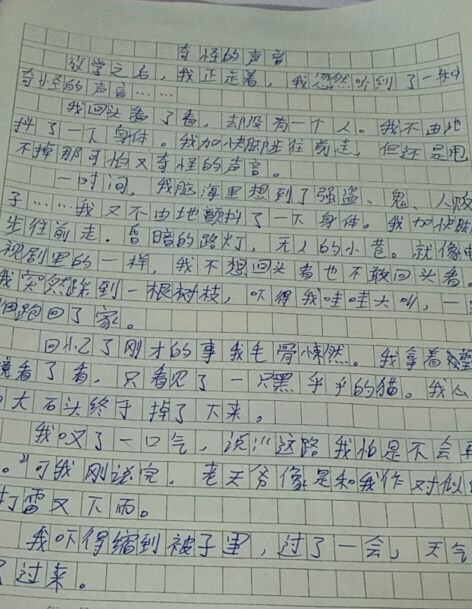 奇怪的声音
放学之后，我正走着，我忽然听到了一种
奇怪的声音……
我回头看了看，却没有一个人。我不由地
抖了一下身体。我加快脚步往前走，但还是甩
不掉那可怕又奇怪的声音。
一时间，我脑海里想到了强盗、鬼、人贩
子……我又不由地颤抖了一下身体。我加快脚
步往前走。昏暗的路灯，无人的小巷。就像电
视剧里的一样，我不想回头看也不敢回头看。
我突然踩到一根树枝，吓得我哇哇大叫，一
跑回了家。
回忆了刚才的事我毛骨悚然。我拿着望
镜看了看，只看见了一只黑乎乎的猫。我心
大石头终于掉了下来。
我叹了一口气，说："这路我怕是不会再
。"可我刚说完，老天爷像是和我作对似
打雷又下雨。
我吓得缩到被子里，过了一会，天气
了过来。